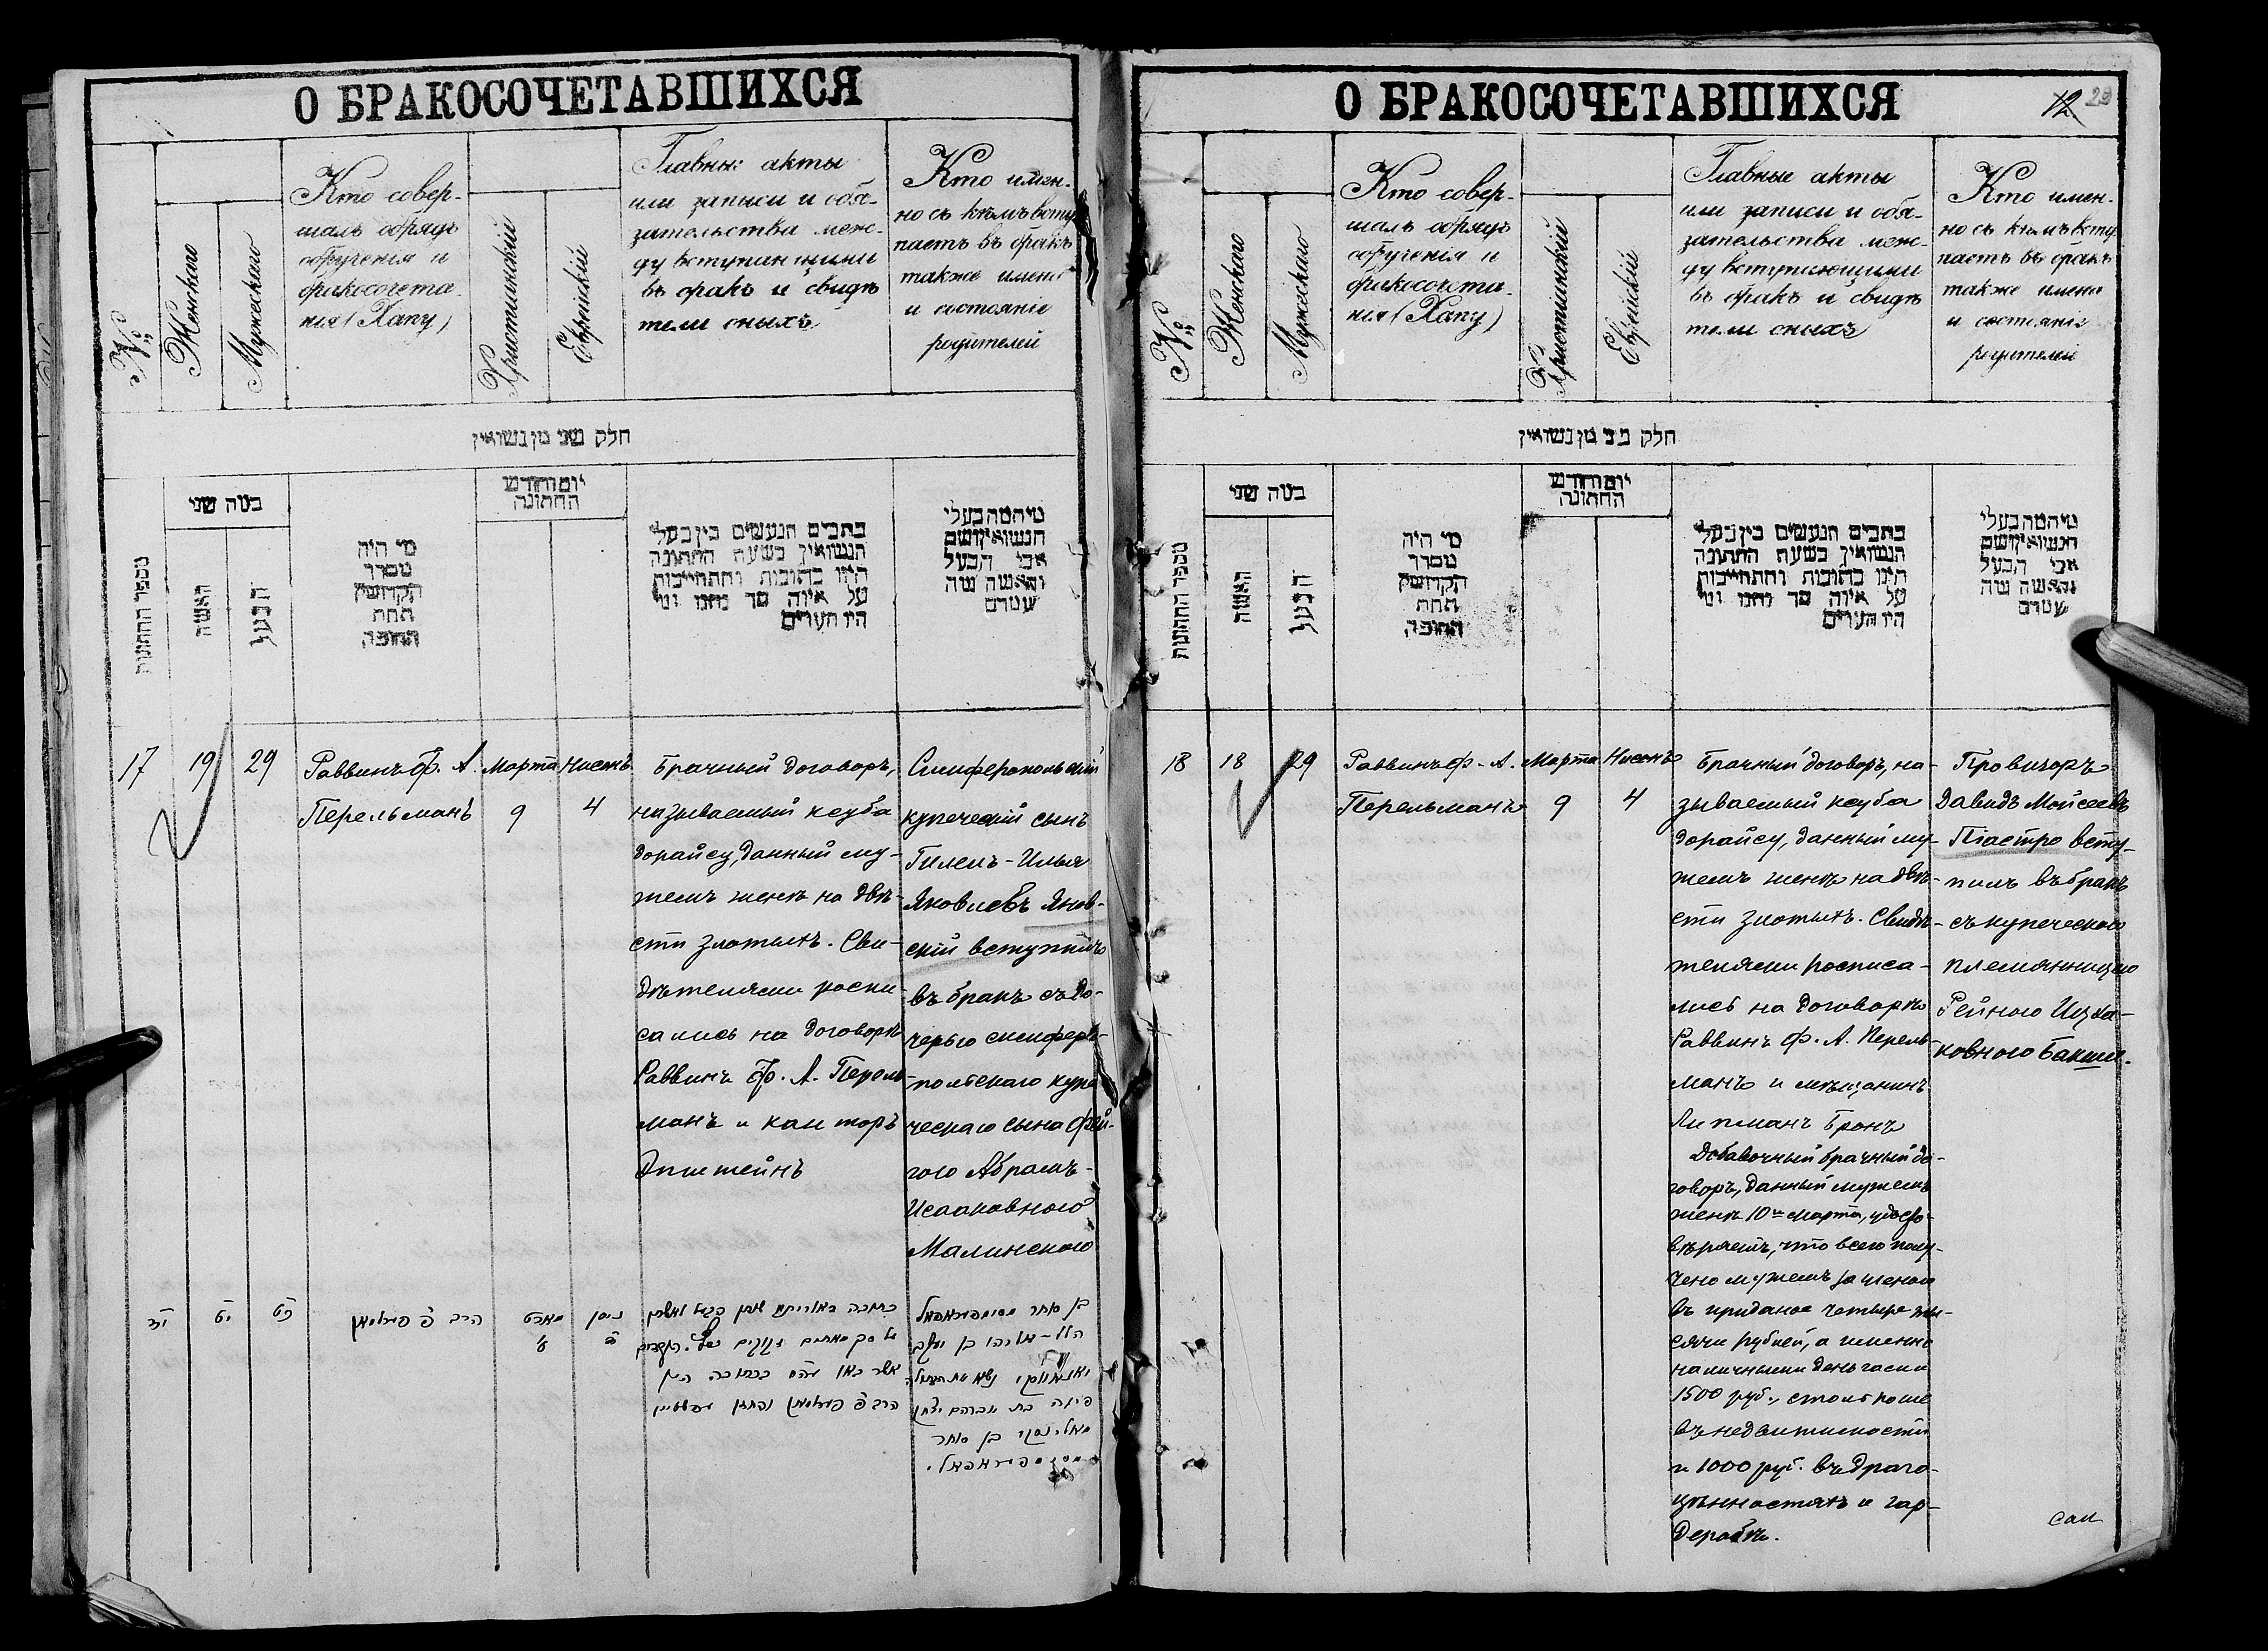 О БРАКОСОЧЕТАВШИХСЯ
№
Женскаго
Мужескаго
Кто совер-
шалъ обрядъ
обрученія и
бракосочета-
нія (Хапу)
Христіанскій
Еврейскій
Главны: акты
или записи и обя-
зательства меж-
ду вступающими
въ бракъ и свидѣ
тели оныхъ
Кто имен-
но съ кѣмъ всту
паетъ въ бракъ
также имена
и состояніе
родителей
חלק שני מן נשואין
מספר החתונות
כמה שני
האשה
הבעל
מי היה
מסדר
הקדושין
תחת
החופה
יום וחודש
החתונה
כתבים הנעשים בין בעלי
הנשואין בשעת החתונה
היינו כתובות והתחייבות
על איזה סך נתנו ומי
היו העדים
מי המה בעלי
הנשואין ושם
אבי הבעל
והאשה
17
19
29
Раввинъ Ф. А.
Перельманъ
Марта
9
Нисанъ
4
Брачный договоръ,
называемый кеуба
дорайсу, данный му-
жемъ женѣ на двѣ-
сти злотыхъ. Сви-
дѣтелями роспи-
сались на договорѣ
Раввинъ Ф. А. Перель
манъ и канторъ
Эпштейнъ
Симферопольскій
купеческій сынъ
Гилелъ-Илья
Яковлевъ Янов-
скій вступилъ
въ бракъ съ до-
черью симферо-
польскаго купе
ческаго сына Фей-
гою Абрамъ-
Исааковною
Малинскою
יז
יט
כט
הרב פ פערלמאן
מארט
ט
ניסן
ד
בן סוחר מסימפעראפאל
הלל-אליהו בן יעקב
פיגה בת אברהם יצחק
מאלינסקי בן סוחר
הרב פ פערלמאן והחזן עפשטיין
О БРАКОСОЧЕТАВШИХСЯ
12
29
№
Женскаго
Мужескаго
Кто совер-
шалъ обрядъ
обрученія и
бракосочета-
нія (Хапу)
Христіанскій
Еврейскій
Главные акты
или записи и обя-
зательства меж-
ду вступающими
въ бракъ и свидѣ
тели оныхъ
Кто имен-
но съ кѣмъ всту
паетъ въ бракъ
также имена
и состояніе
родителей
חלק שני מן נשואין
מספר החתונות
כמה שני
האשה
הבעל
מי היה
מסדר
הקדושין
תחת
החופה
יום וחודש
החתונה
כתבים הנעשים בין בעלי
הנשואין בשעת החתונה
היינו כתובות והתחייבות
על איזה סך נתנו ומי
היו העדים
מי המה בעלי
הנשואין ושם
אבי הבעל
והאשה
18
18
29
Раввинъ Ф. А.
Перельманъ
Марта
9
Нисонъ
4
Брачный договоръ, на-
зываемый кеуба
дорайсу, данный му-
жемъ женѣ на двѣ-
сти злотыхъ. Свидѣ-
телями росписа-
лись на договорѣ
Раввинъ Ф. А. Перель-
манъ и мѣщанинъ
Липманъ Бронъ
Добавочный брачный до-
говоръ, данный мужемъ
женѣ 10го марта, удосто-
вѣряетъ, что всего полу-
чено мужемъ за женою
въ приданое четыре ты-
сячи рублей, а именно
наличными деньгами
1500 руб., столько же
въ недвижимости
и 1000 руб. въ драго-
цѣнностяхъ и гар-
деробѣ.
Провизоръ
Давидъ Мойсеевъ
Піастро всту-
пилъ въ бракъ
съ купеческою
племянницею
Рейною Исха-
ковною Бакши.